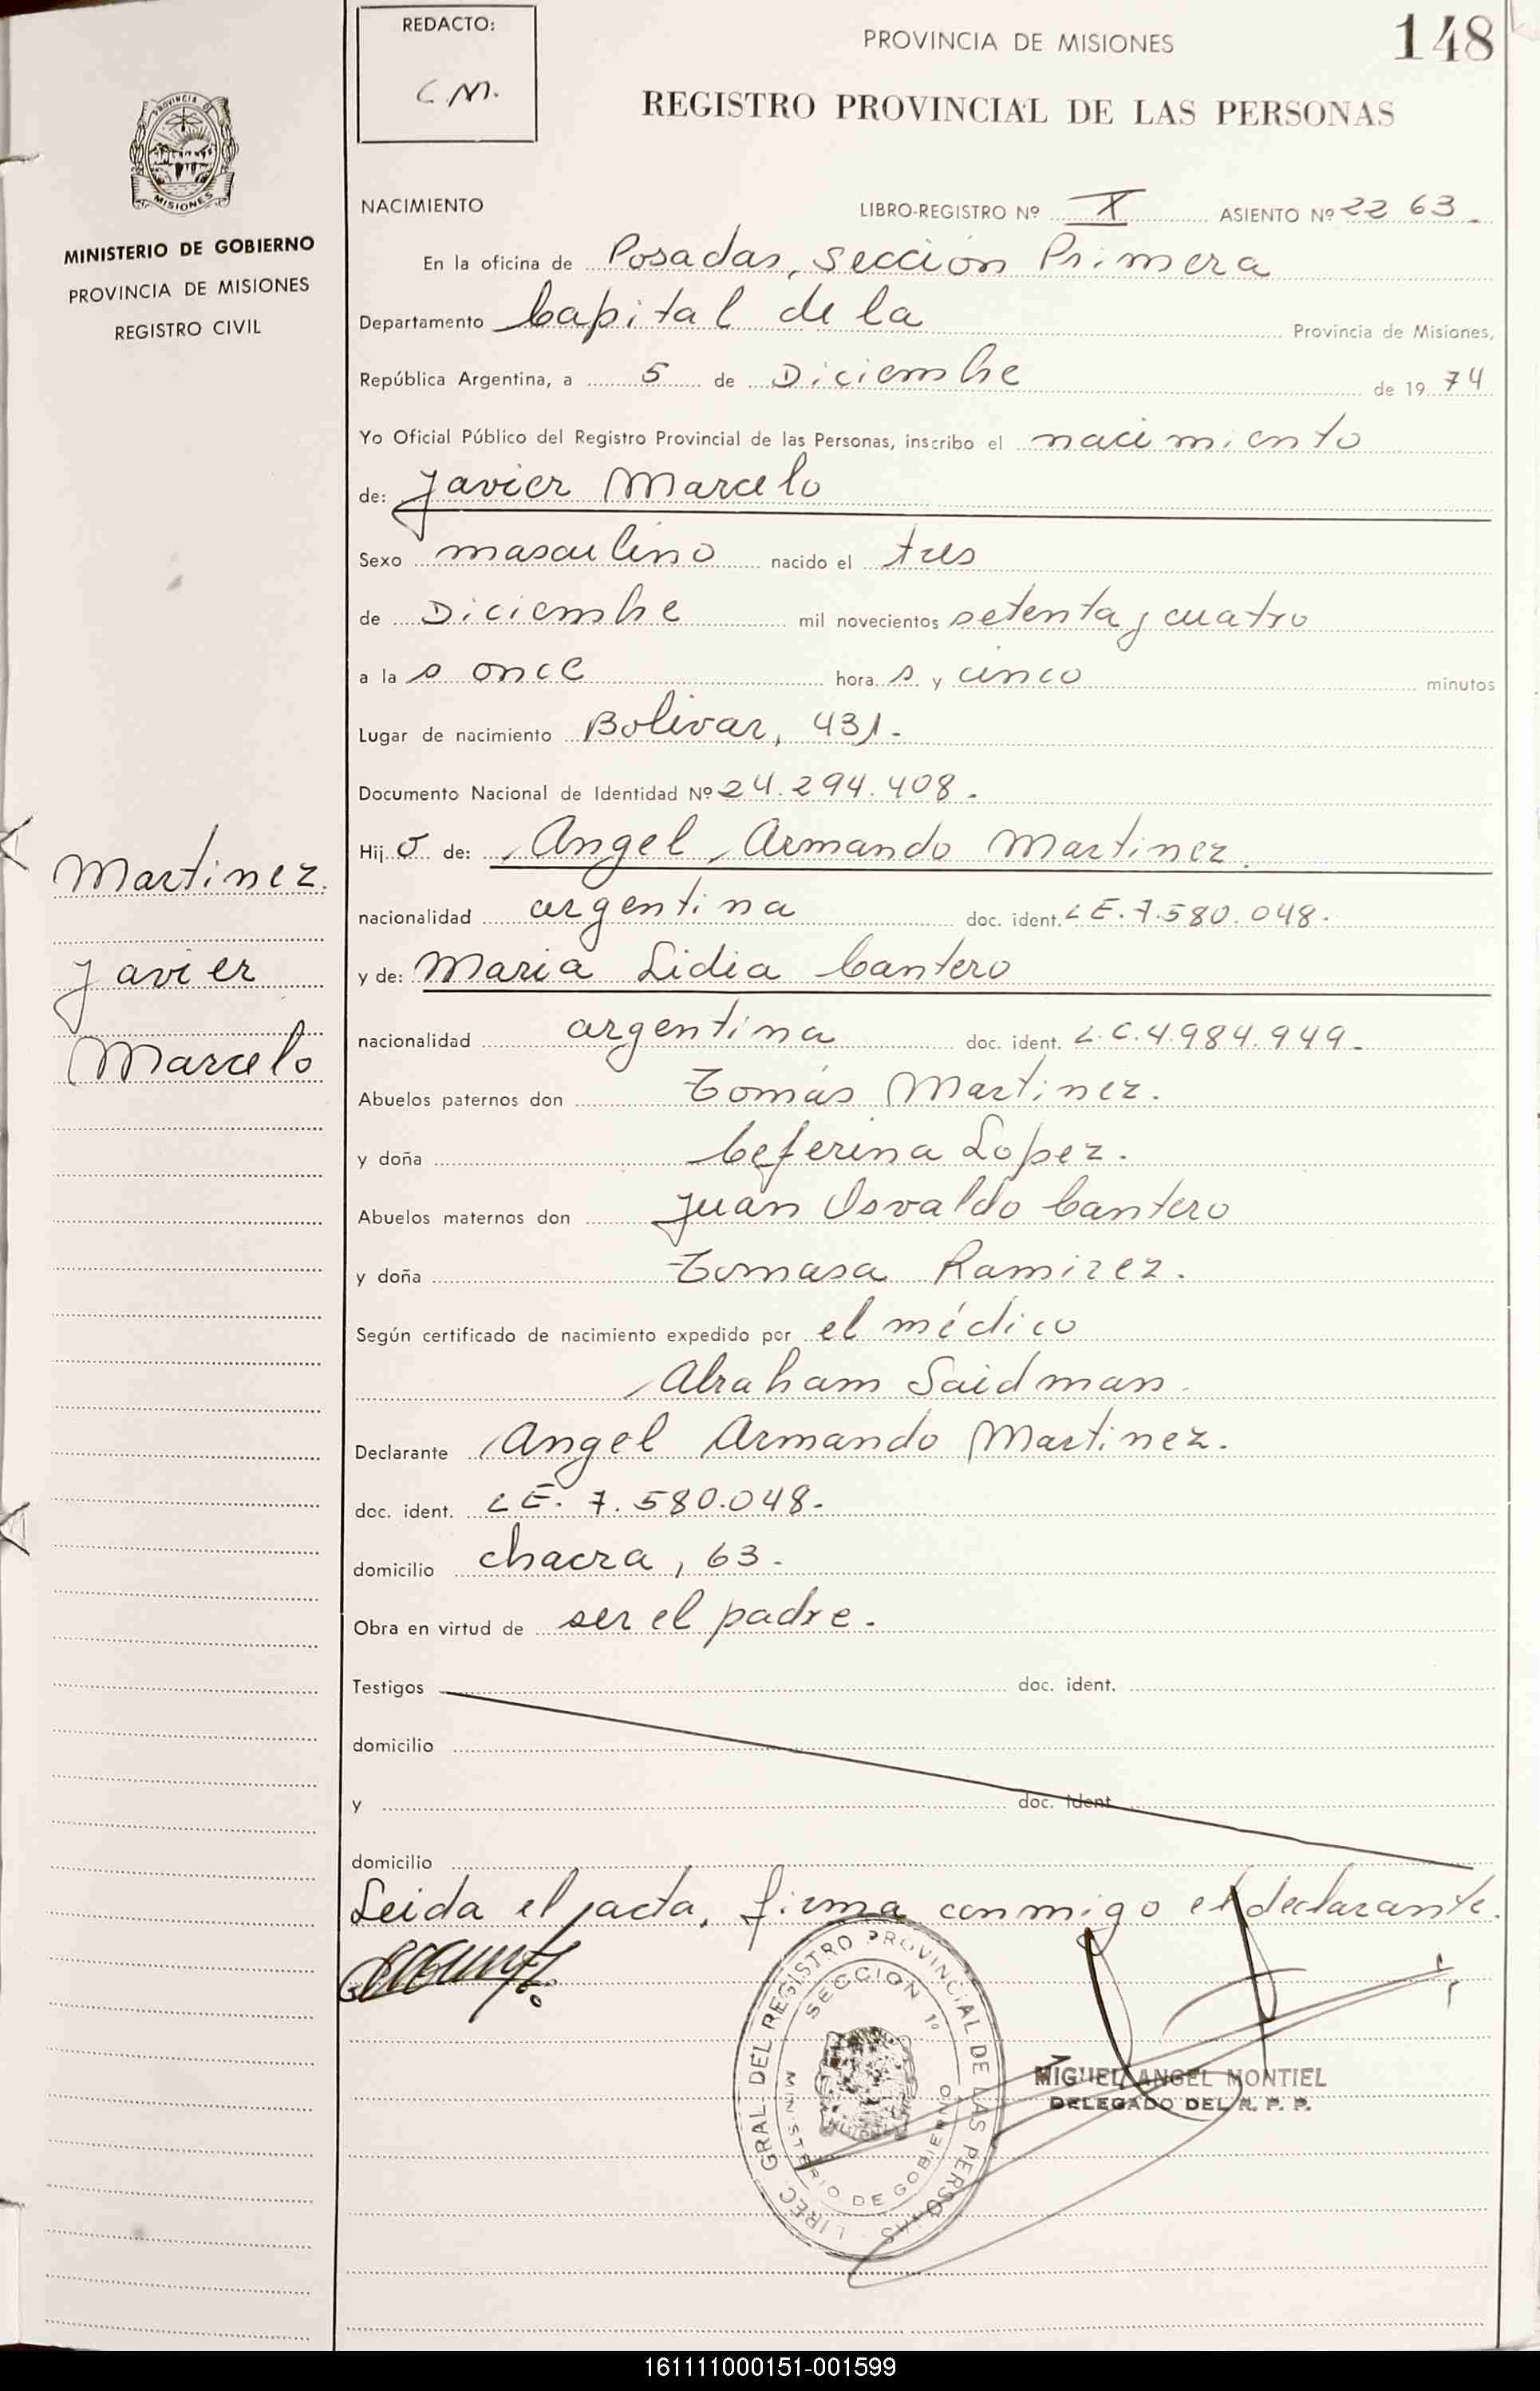 REDACTO:
C.M.
PROVINCIA DE MISIONES
148
REGISTRO PROVINCIAL DE LAS PERSONAS
PROVINCIA DE
MISIONES
MINISTERIO DE GOBIERNO
PROVINCIA DE MISIONES
REGISTRO CIVIL
NACIMIENTO LIBRO-REGISTRO Nº X ASIENTO Nº 22 63
En la oficina de Posadas, sección Primera
Departamento Capital de la Provincia de Misiones,
República Argentina, a 5 de Diciembre de 19 74
Yo Oficial Público del Registro Provincial de las Personas, inscribo el nacimiento
de: Javier Marcelo
Sexo masculino nacido el tres
de Diciembre mil novecientos setenta y cuatro
a la s once hora s y cinco minutos
Lugar de nacimiento Bolivar, 431.
Documento Nacional de Identidad Nº 24.294.408.
Hij o de: Angel Armando Martinez.
nacionalidad argentina doc. ident. LE. 7.580.048.
y de: Maria Lidia Cantero
nacionalidad argentina doc. ident. L.C. 4.984.949.
Abuelos paternos don Tomás Martinez.
y doña Ceferina Lopez.
Abuelos maternos don Juan Osvaldo Cantero
y doña Tomasa Ramirez.
Según certificado de nacimiento expedido por el médico
Abraham Saidman.
Declarante Angel Armando Martinez.
doc. ident. LE. 7.580.048.
domicilio chacra, 63.
Obra en virtud de ser el padre.
Testigos doc. ident.
domicilio
y doc. ident.
domicilio
Leida el acta, firma conmigo el declarante.
Martinez.
Javier
Marcelo
DIREC. GRAL. DEL REGISTRO PROVINCIAL DE LAS PERSONAS
SECCION 1º
MINISTERIO DE GOBIERNO
MIGUEL ANGEL MONTIEL
DELEGADO DEL R. P. P.
161111000151-001599